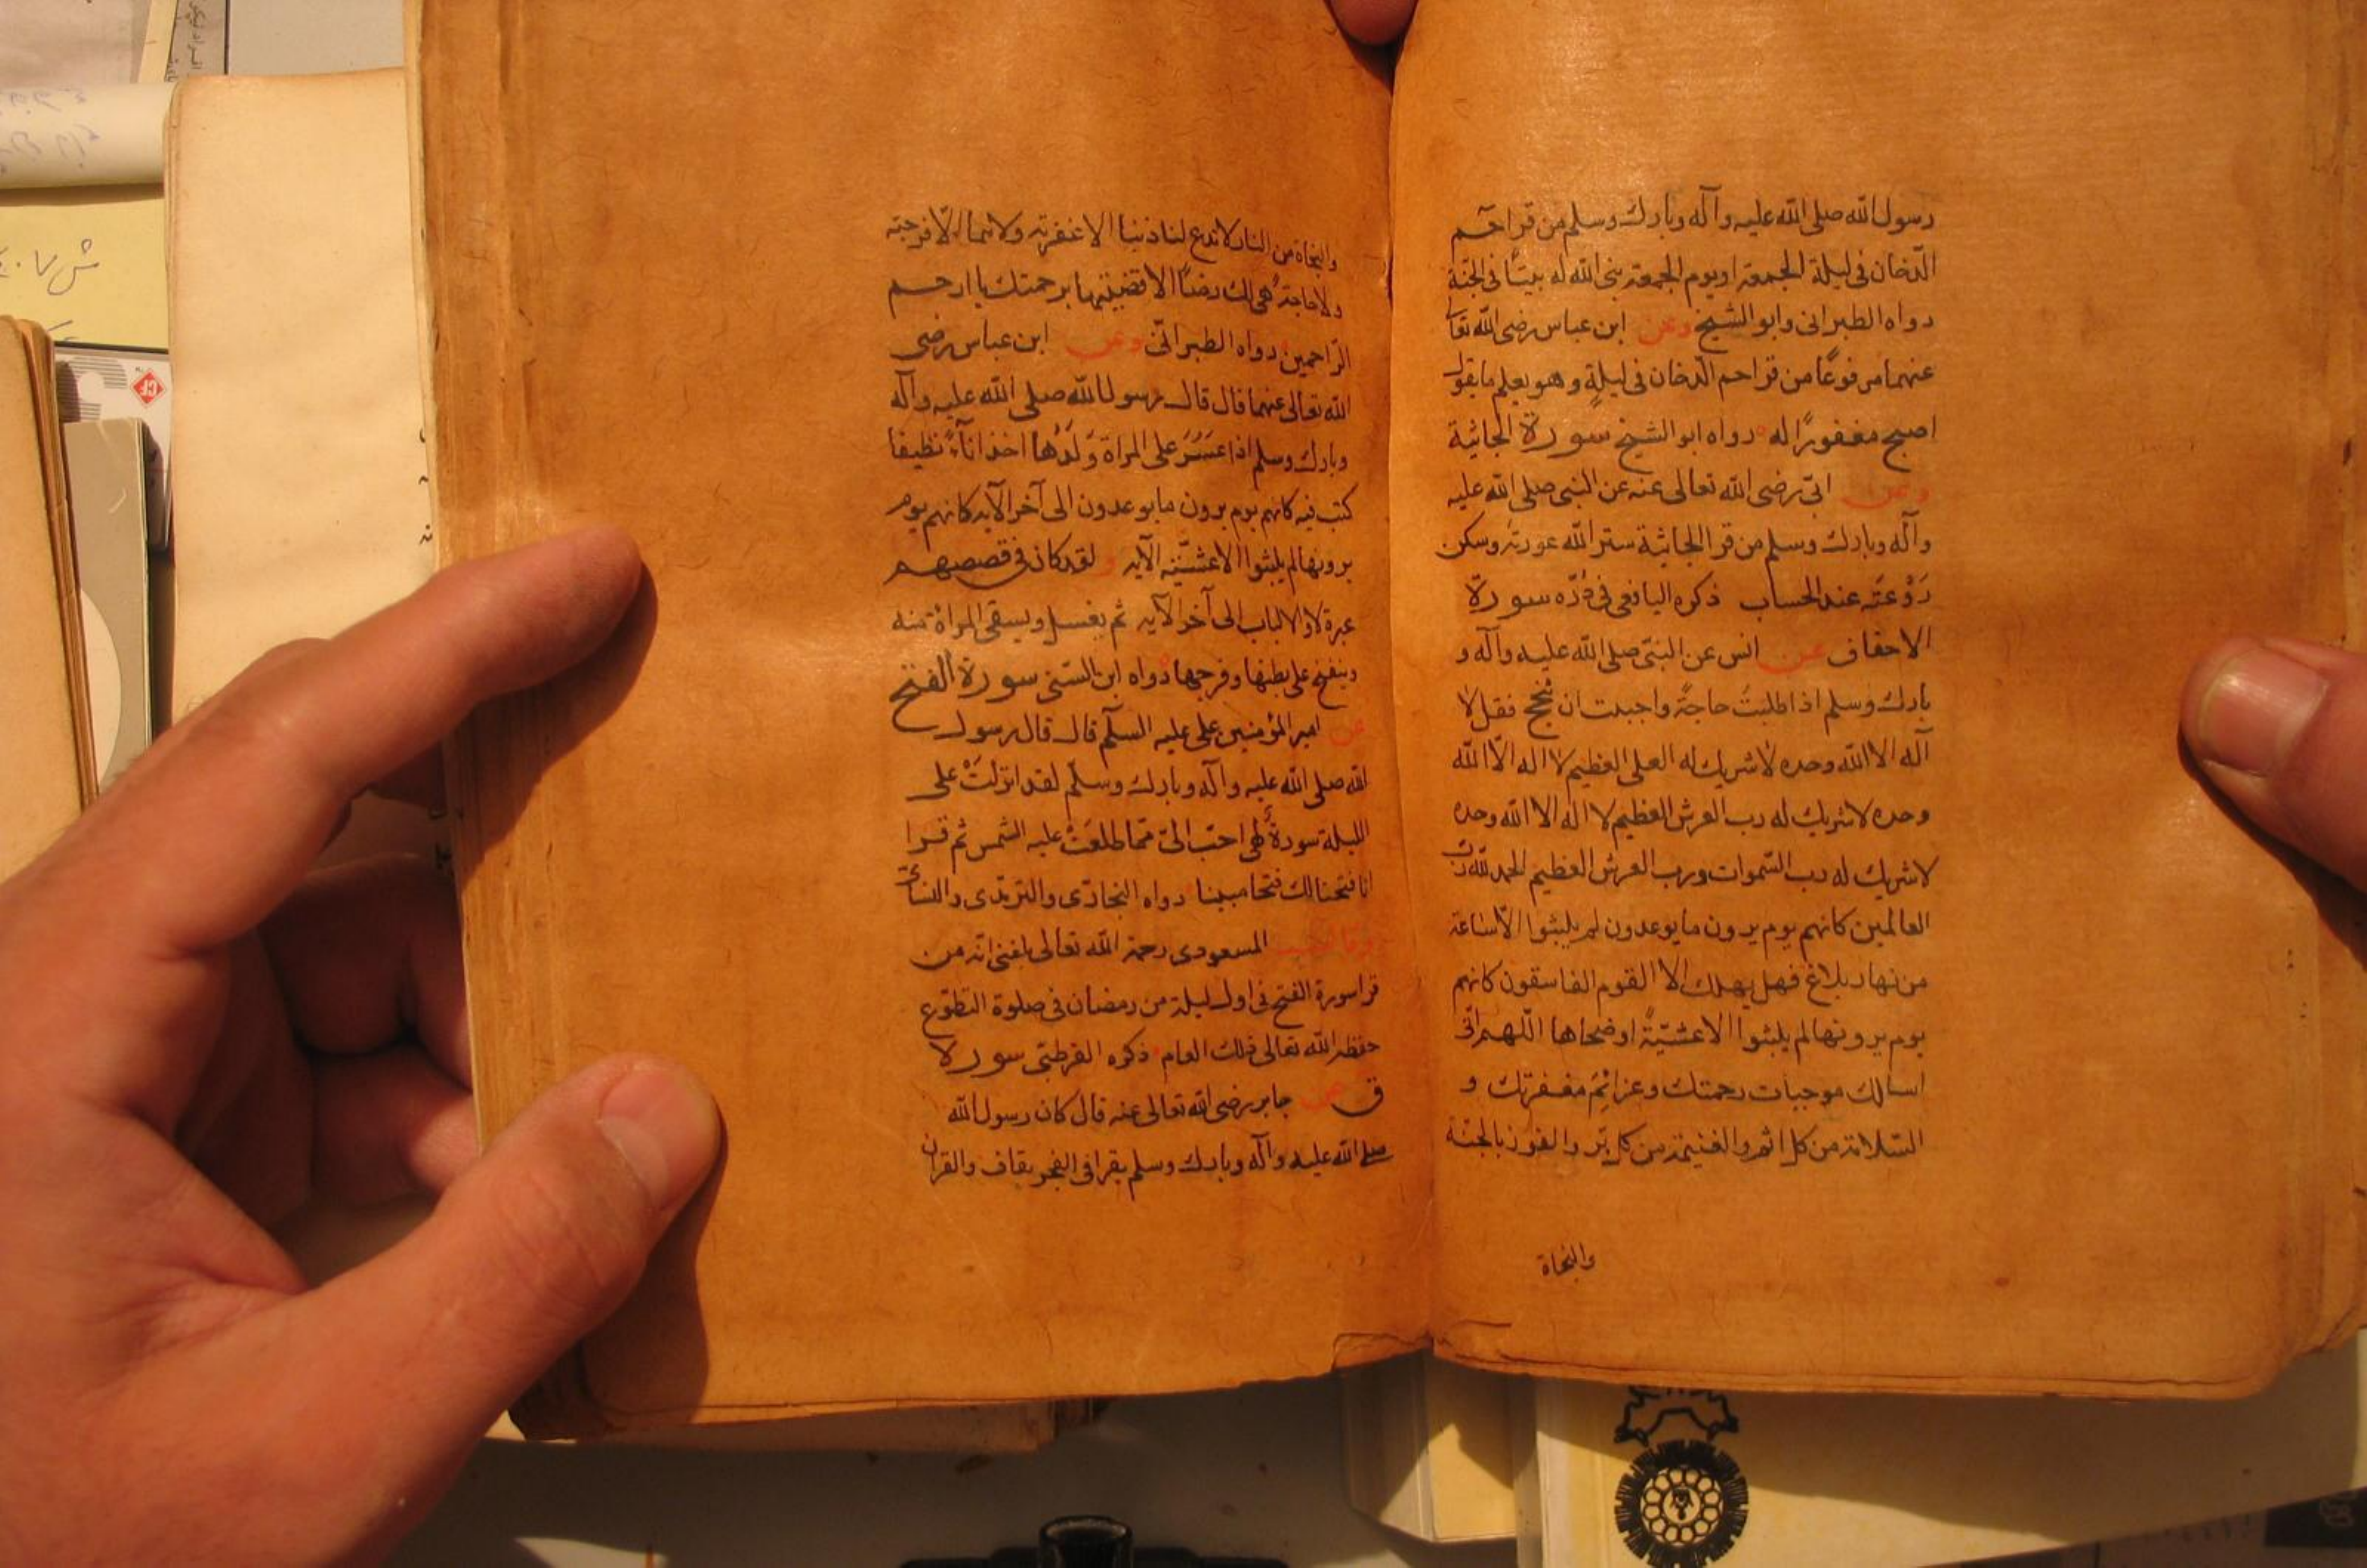 رسول الله صلى الله عليه وآله وبارك وسلم من قرا حم
الدّخان فى ليلة الجمعة او يوم الجمعة بنى الله له بيتًا فى الجنة
رواه الطبرانى وابو الشيخ وعن ابن عباس رضى الله تعا
عنهما مرفوعًا من قرا حم الدّخان فى ليلةٍ وهو يعلم ما يقول
اصبح مغفورًا له رواه ابو الشيخ سورة الجاثية
وعن ابىّ رضى الله تعالى عنه عن النبى صلى الله عليه
وآله وبارك وسلم من قرا الجاثية ستر الله عورته وسكن
رَوْعَتَه عند الحساب ذكره اليافعى فى دُرّه سورة
الاحقاف عن انس عن النبىّ صلى الله عليه وآله و
بارك وسلم اذا طلبتُ حاجةً واجبت ان تنجح فقل لا
آله الا الله وحده لا شريك له العلى العظيم لا اله الّا الله
وحده لا شريك له رب العرش العظيم لا اله الا الله وحده
لا شريك له رب السّموات ورب العرش العظيم الحمد لله ربّ
العالمين كانهم يوم يرون ما يوعدون لم يلبثوا الّا ساعة
من نهار بلاغ فهل يهلك الا القوم الفاسقون كانهم
يوم يرونها لم يلبثوا الا عشيّةً او ضحاها اللّهم انّى
اسالك موجبات رحمتك وعزائِمَ مغفرتك و
السّلامة من كل اثم والغنيمة من كل برّ والفوز بالجنة
والنجاة
والنجاة من النار لا تدع لنا ذنبا الا غفرته ولا هما الّا فرجته
ولا حاجةً هى لك رضًا الا قضيتها برحمتك يا ارحم
الرّاحمين رواه الطبرانّى وعن ابن عباس رضى
الله تعالى عنهما قال قال رسول الله صلى الله عليه وآله
وبارك وسلم اذا عَسُرَ على المراة وَلَدُها اخذ اناءً نظيفا
كتب فيه كانهم يوم يرون ما يوعدون الى آخر الآيه كانهم يوم
يرونها لم يلبثوا الا عشيّة الآيه و لقد كان فى قصصهم
عبرة لاولا لباب الى آخر الآيه ثم يغسل ويسقى المراة منه
وينفخ على بطنها وفرجها رواه ابن السّنى سورة الفتح
عن امير المؤمنين على عليه السلّم قال قال رسول
الله صلى الله عليه وآله وبارك وسلّم لقد انزلَتْ على
الليلة سورةٌ لهى احبّ الىّ ممّا طلعَتْ عليه الشمس ثم قرا
انا فتحنا لك فتحا مبينا رواه البخارّى والترمذى والنسائىّ
المسعودى رحمة الله تعالى بلغنى انّه من
قرا سورة الفتح فى اول ليلة من رمضان فى صلوة التطوّع
حفظه الله تعالى ذلك العام ذكره القرطبّى سورة
ق عن جابر رضى الله تعالى عنه قال كان رسول الله
صلى الله عليه وآله وبارك وسلم يقرا فى الفجر بقاف والقران